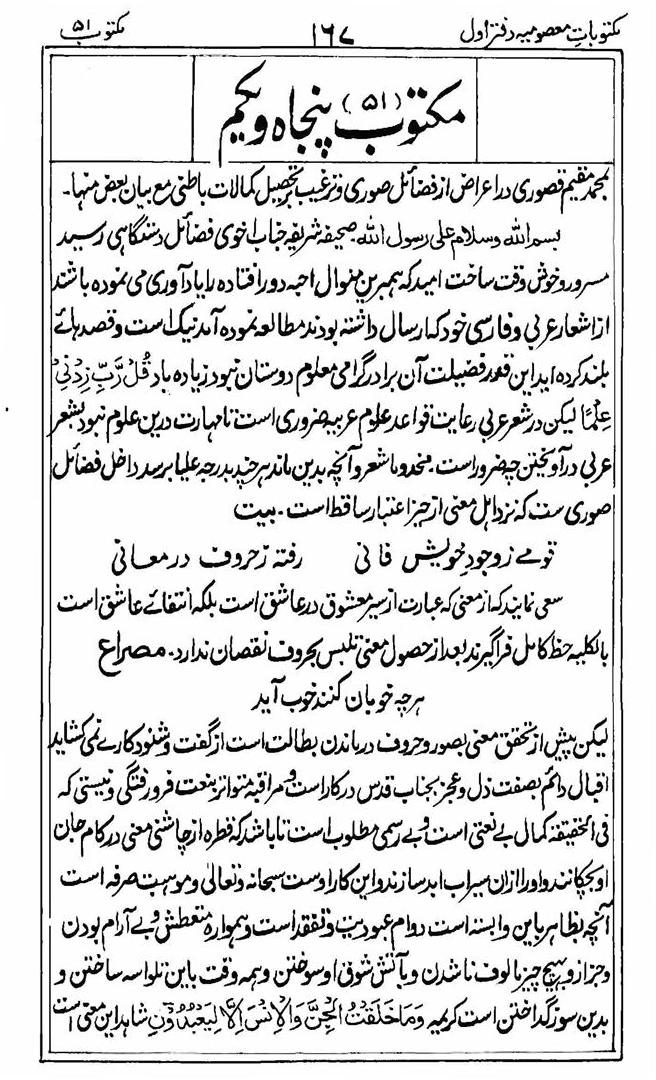 مکتوبات معصومیہ دفتر اول ۱۶۷ مکتوب ۵۱
مکتوب (۵۱) پنجاہ و یکم
بمحمد مقیم قصوری در اعراض از فضائل صوری و ترغیب بر تحصیل کمالات باطنی مع بیان بعض منہا۔
بسم اللہ وسلام علی رسول اللہ۔ صحیفہ شریفہ جناب اخوی فضائل دستگاہی رسید
مسرور و خوش وقت ساخت امید کہ ہمبرین منوال احبہ دور افتادہ را یاد آوری می نمودہ باشند
از اشعار عربی و فارسی خود کہ ارسال داشتہ بودند مطالعہ نمودہ آمد نیک است و قصد ہائے
بلند کردہ اید این قدر فضیلت آن برادر گرامی معلوم دوستان نبود زیادہ باد قُلْ رَّبِّ زِدْنِیْ
عِلْمًا لیکن در شعر عربی رعایت قواعد علوم عربیہ ضروری است تا مہارت درین علوم نبود بشعر
عربی در آویختن چہ ضرور است۔ مخدوما شعر و آنچہ بدین ماند ہر چند بدرجہ علیا برسد داخل فضائل
صوری ست کہ نزد اہل معنی از حیز اعتبار ساقط است۔ بیت
قومے ز وجود خویش فانی رفتہ ز حروف در معانی
سعی نمایند کہ از معنی کہ عبارت از سیر معشوق در عاشق است بلکہ انتفائے عاشق است
بالکلیہ حظ کامل فرا گیرند بعد از حصول معنی تلبس بحروف نقصان ندارد۔ مصراع
ہر چہ خوبان کنند خوب آید
لیکن پیش از تحقق معنی بصور و حروف در ماندن بطالت است از گفت و شنود کارے نمی کشاید
اقبال دائم بصفت ذل و عجز بجناب قدس در کار است و مراقبہ متواتر بنعت فرو رفتگی و نیستی کہ
فی الحقیقہ کمال بے نعتی است و بے رسمی مطلوب است تا باشد کہ قطرہ از چاشنی معنی در کام جان
او بچکانند و او را ازان سیراب ابد سازند و این کار اوست سبحانہ و تعالیٰ و موہبت صرفہ است
آنچہ بظاہر باین وابستہ است دوام عبودیت و تفقد است و ہموارہ متعطش و بے آرام بودن
و جز از و بہیچ چیز مالوف ناشدن و بآتش شوق او سوختن و ہمہ وقت باین تلواسہ ساختن و
بدین سوز گداختن است کریمہ وَمَا خَلَقْتُ الْجِنَّ وَالْاِنْسَ اِلَّا لِیَعْبُدُوْنِ شاہد این معنی است